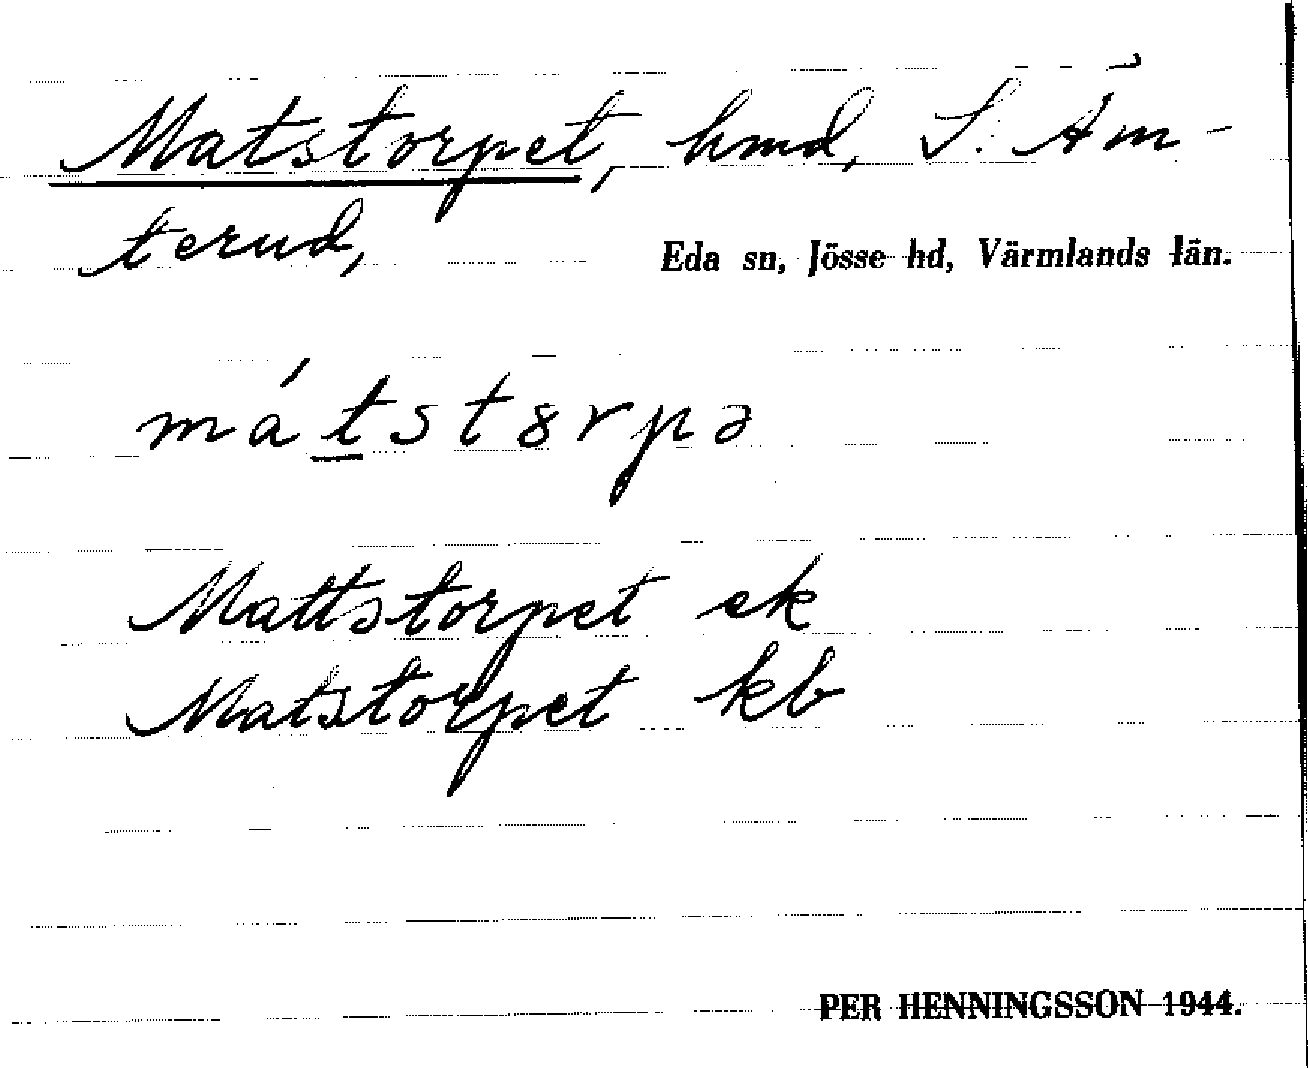 Matstorpet, hmd, S. Äm-
terud,
Eda sn, Jösse hd, Värmlands län.
mátst8rpə
Mattstorpet ek
Matstorpet kb
PER HENNINGSSON 1944.